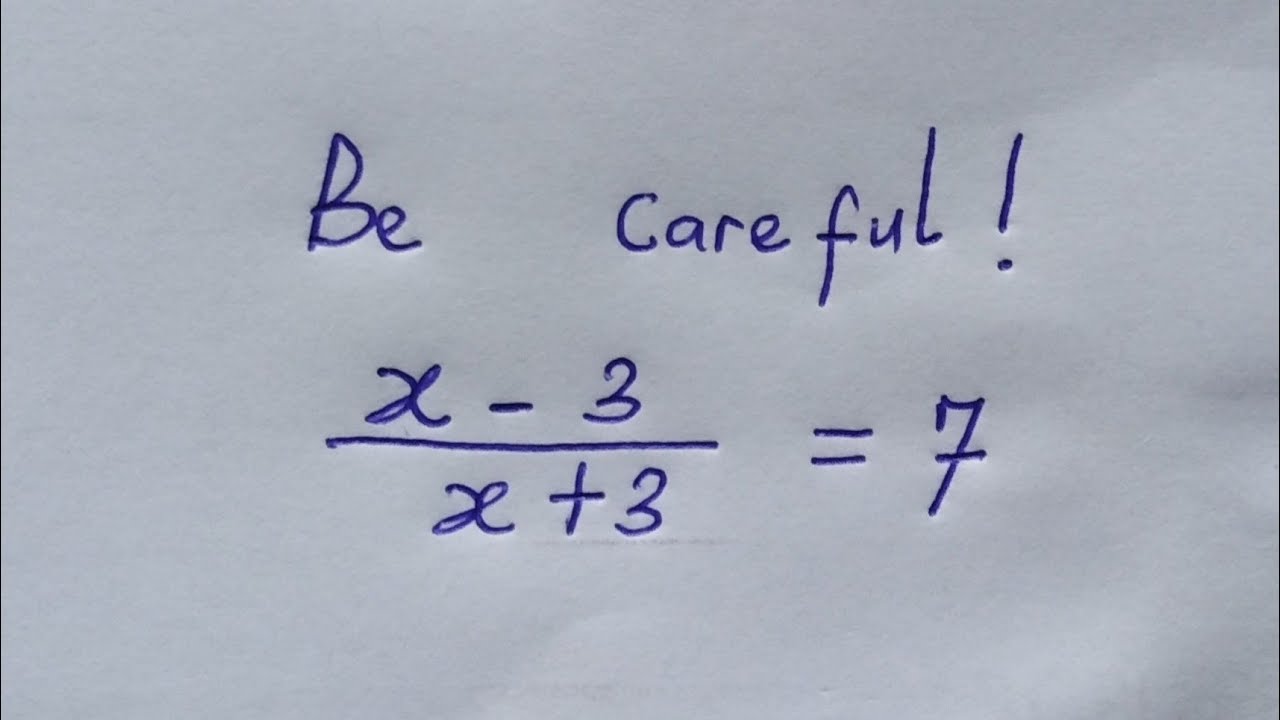 Be careful!
x - 3
x + 3 = 7